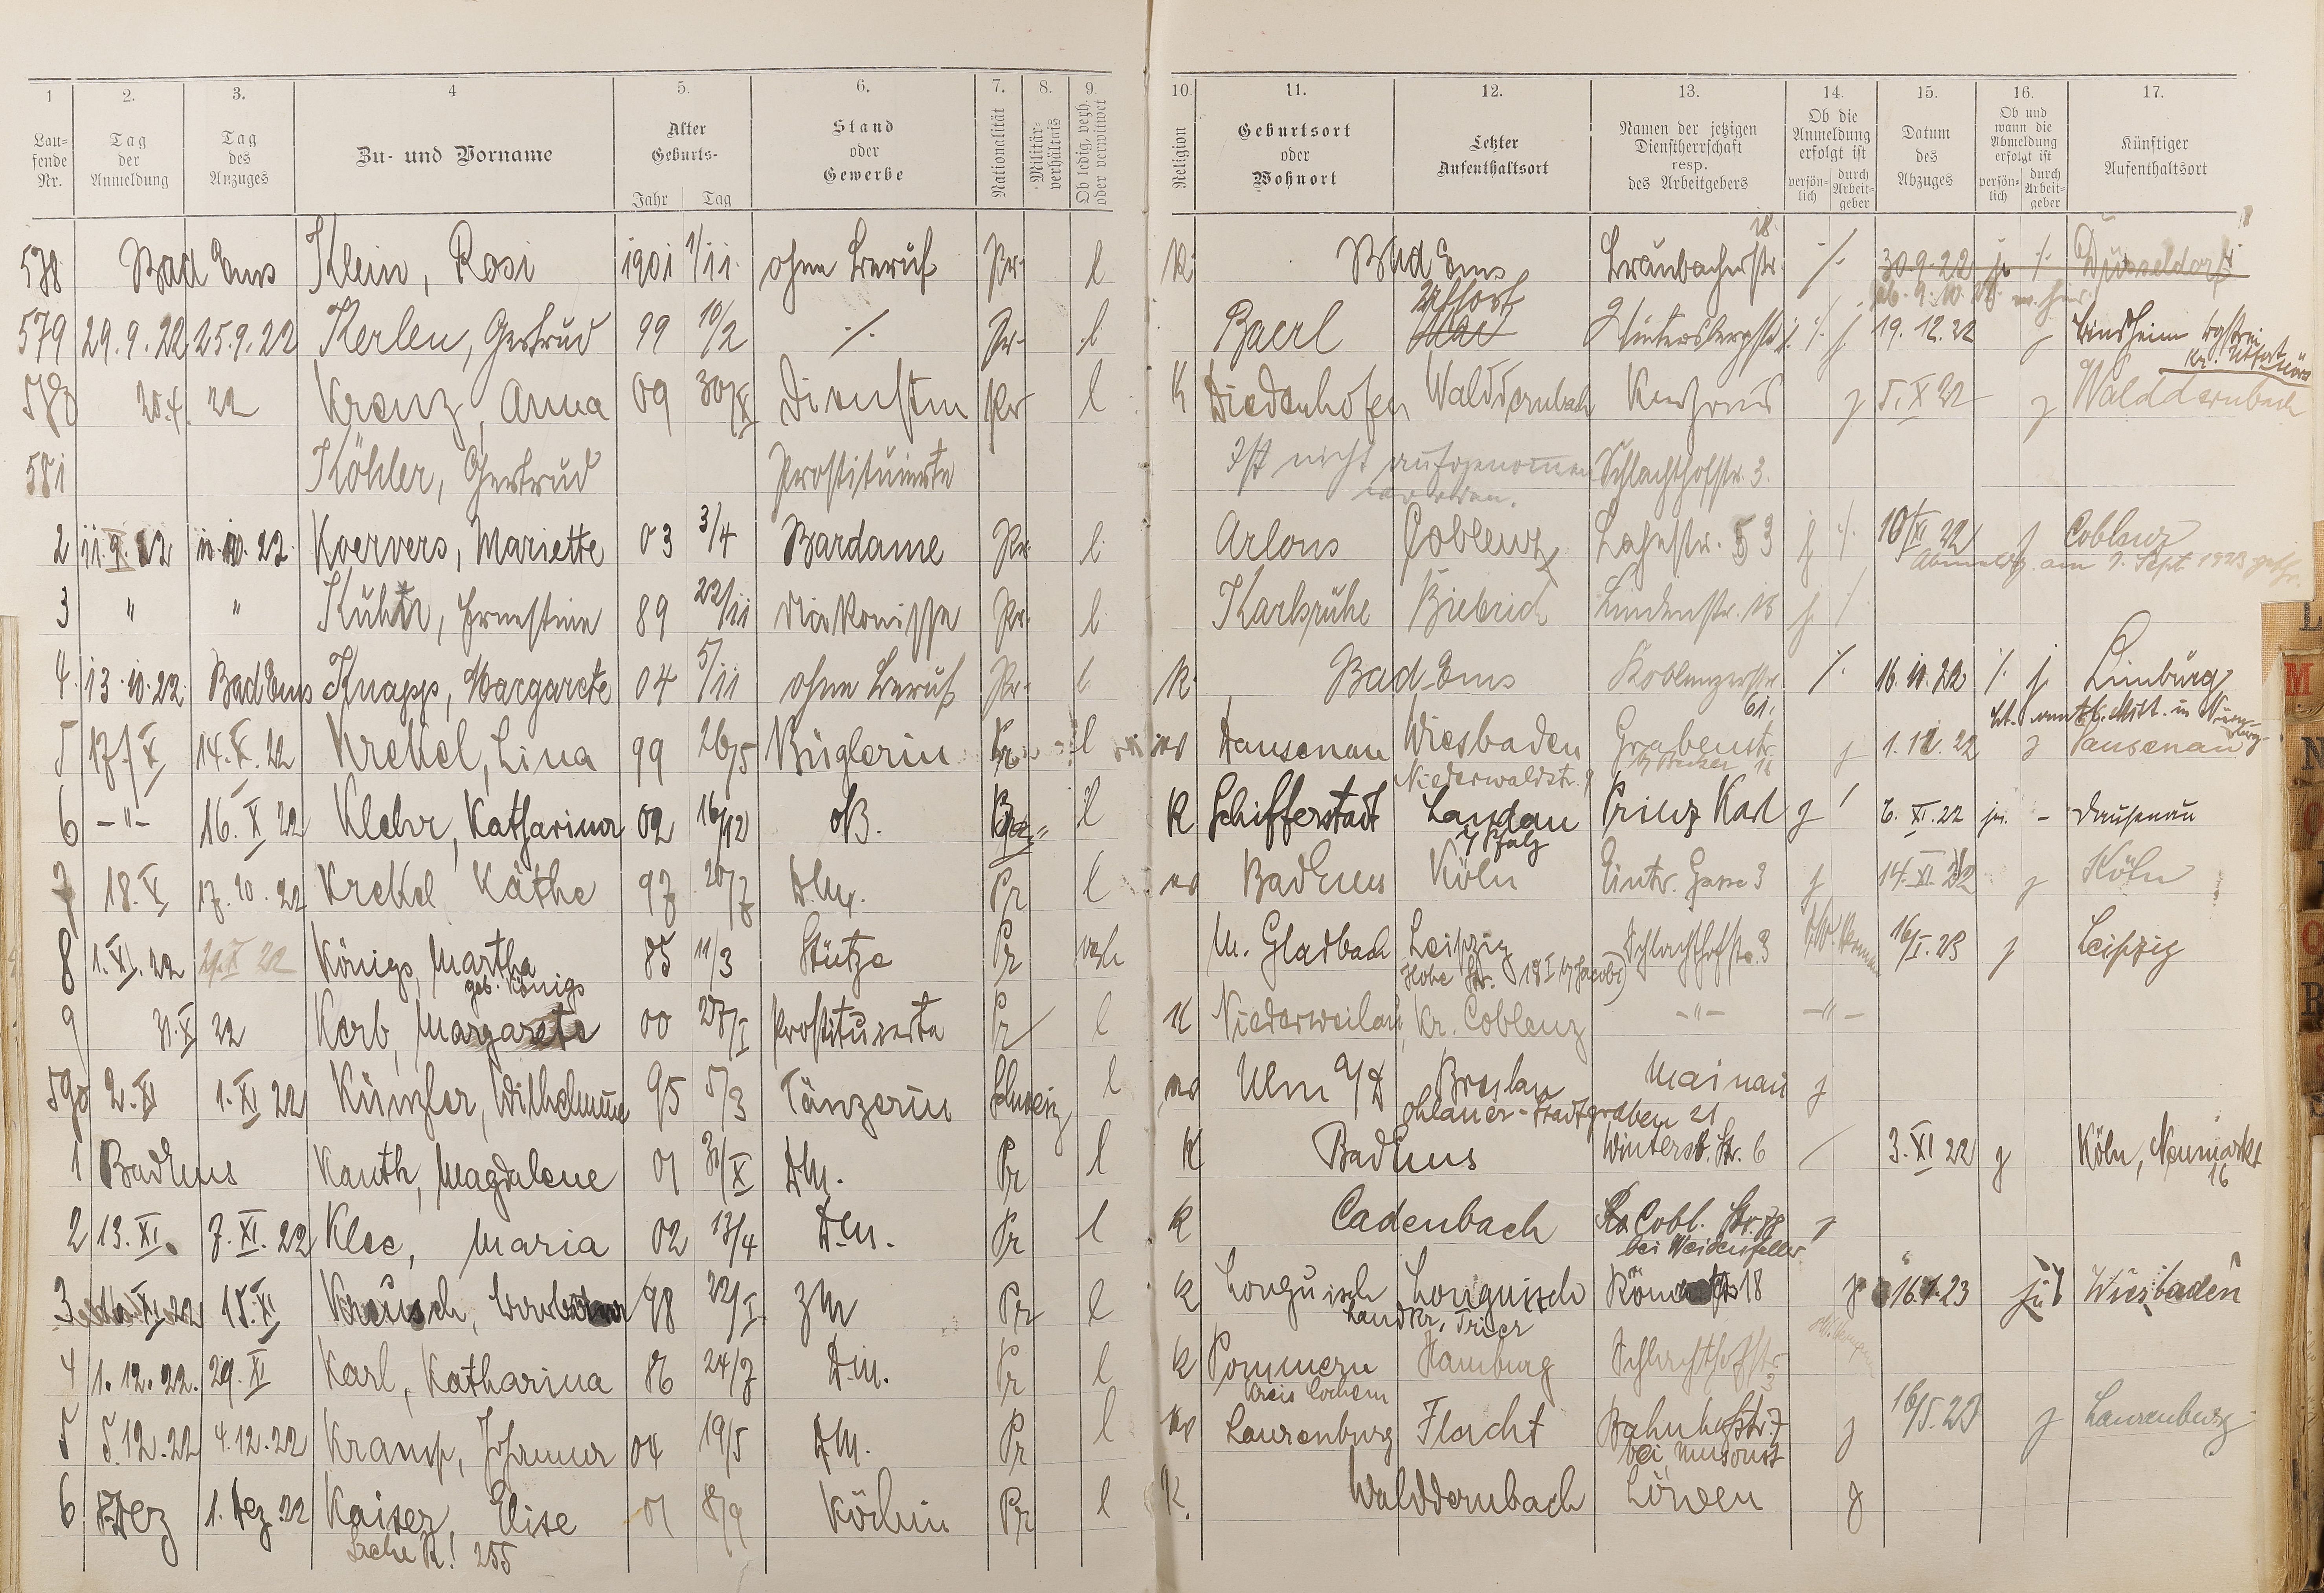 1 2. 3. 4 5. 6. 7. 8. 9. 10. 11. 12. 13. 14. 15. 16. 17.
Lau-fende Nr. Tag der Anmeldung Tag des Anzuges Zu- und Vorname Alter Geburts- Jahr Tag Stand oder Gewerbe Nationalität Militär-verhältnis Ob ledig, verh. oder verwitwet Religion Geburtsort oder Wohnort Letzter Aufenthaltsort Namen der jetzigen Dienstherrschaft resp. des Arbeitgebers Ob die Anmeldung erfolgt ist persön-lich durch Arbeit-geber Datum des Abzuges Ob und wann die Abmeldung erfolgt ist persön-lich durch Arbeit-geber Künftiger Aufenthaltsort
578 Bad Ems Klein, Rosi 1901 1/11. ohne Beruf Pr. l K. Bad Ems Braubacherstr. 28 ·/. 30.9.22 ·/. Düsseldorf
579 29.9.22 25.9.22 Kerlen, Gertrud 99 10/2 ·/. Pr. l. Baerl Utfort Wintersbergstr. ·/. j 19.12.22 j
20.X. 22 Krenz, Anna 09 30/X Dienstm Pr l K Diedenhofen Walddernbach Kurhaus j 5.X 22 j Walddernbach
581 Köhler, Gertrud Prostituierte Ist nicht aufgenommen worden. Schlachthofstr. 3.
2 11.X 22 11.10.22. Koervers, Mariette 03 3/4 Bardame Pr. l. Arlons Coblenz Lahnstr. 53 j ·/. 10/XI 22 j Coblenz
Abmeldg. am 7. Sept. 1923
3 " " Kühn, Ernestine 89 22/11 Diakonisse Pr. l. Karlsruhe Biebrich Lindenstr. 15 j. /
4. 13.10.22. Bad Ems Knapp, Margarete 04 5/11 ohne Beruf Pr. l. K. Bad Ems Koblenzerstr. 61. ·/. 16.10.22 ·/. j. Limburg
5 17./X 14.X.22 Krekel, Lina 99 26/5 Büglerin Pr. l ev Dausenau Wiesbaden Niederwaldstr. 9 Grabenstr. 16 j 1.12.22 j Dausenau
6 -"- 16.X 22 Klehr, Katharina 02 16/12 oB. l K Schifferstadt Landau i/ Pfalz Prinz Karl j ' 6.XI.22 - Dausenau
7 18.X 17.10.22 Krekel Käthe 97 20/7 D.M. Pr l ev Bad Ems Köln Eintr. Gasse 3 j 14.XI.22 j Köln
8 1.XI.22 22 Königs, Martha geb. Königs 85 11/3 Stütze Pr verh M. Gladbach Leipzig Hohe Str. 18 I b/ Jacobi) Schlachthofstr. 3 16/I.23 j Leipzig
9 31.X 22 Korb, Margarete 00 27/I Prostituierte Pr l K Niederweiler, Kr. Coblenz -"- -"-
590 2.XI 1.XI 22 Künzler, Wilhelmine 95 5/3 Tänzerin Schweiz l ev Ulm a/D Breslau Ohlauer-Stadtgraben 21 Mainau j
1 Bad Ems Kauth, Magdalene 01 31/X D.M. Pr l K Bad Ems Wintersb. Str. 6 / 3.XI 22 j Köln, Neumarkt 16
2 13.XI. 7.XI.22 Klee, Maria 02 13/4 D.M. Pr l K Cadenbach Cobl. Str. bei Weidenfeller j
3 XI 22 15.XI Kreusch, Barbara 98 22/I ZM Pr l K Longuich Longuich Landkr. Trier Römerstr. 18 j 16.1.23 Wiesbaden
4 1.12.22. 29.XI Karl, Katharina 86 24/7 D.M. Pr l K Pommern Kreis Cochem Hamburg Schlachthofstr. 3
5 5.12.22 4.12.22 Kramp, Johanna 04 19/5 D.M. Pr l ev Laurenburg Flacht Bahnhofstr. 7 bei Musoust j 16/5.23 j Laurenburg
6 Dez 1. Dez. 22 Kaiser, Elise 01 8/9 Köchin Pr l K. Walddernbach Löwen j
Siehe R! 255